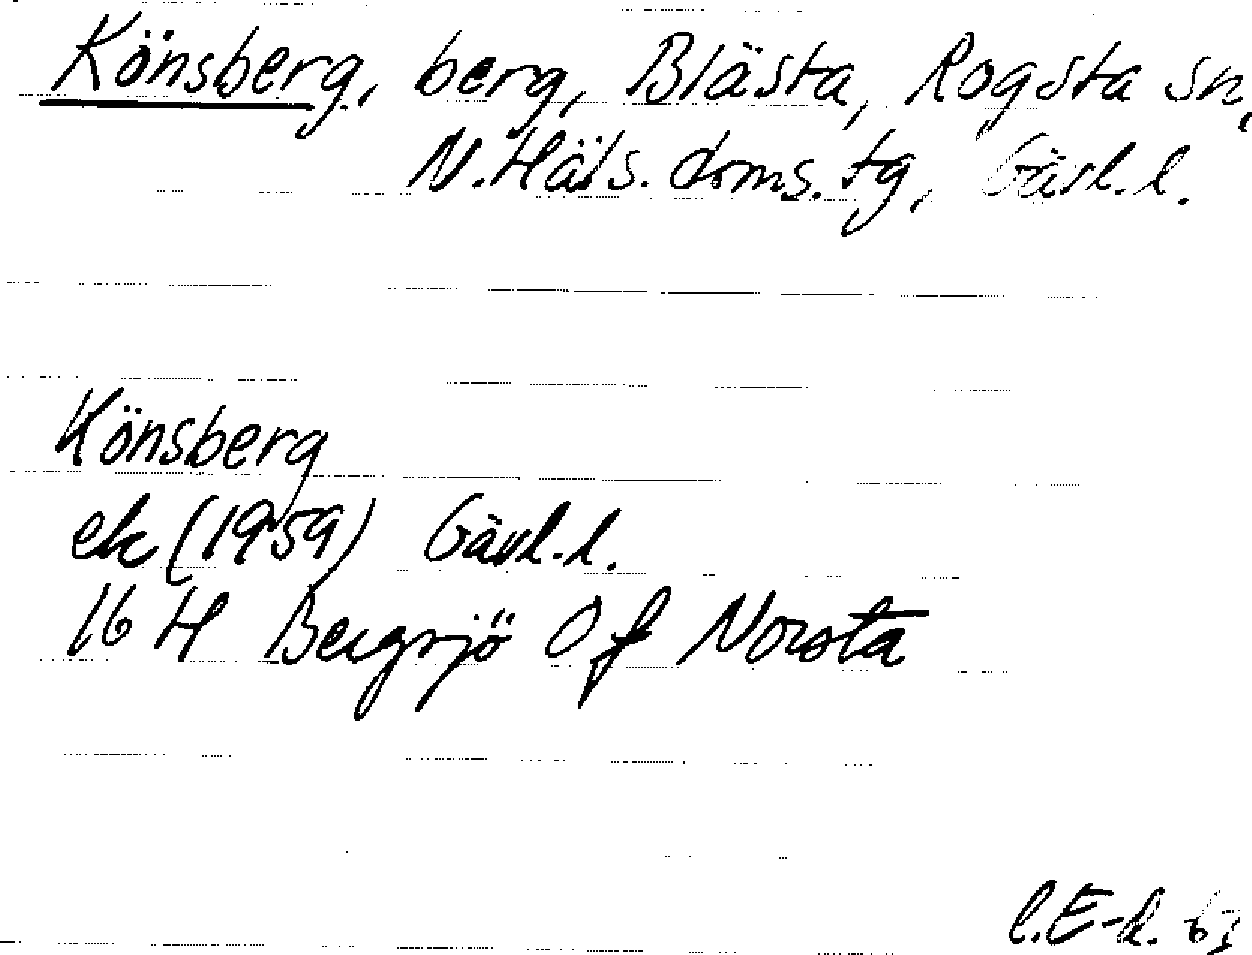 Könsberg, berg, Blästa, Rogsta sn,
N. Häls. doms. tg, Gävl. l.
Könsberg
ek (1959) Gävl. l.
16 H Bergsjö Of Norsta
l. E-k. 63